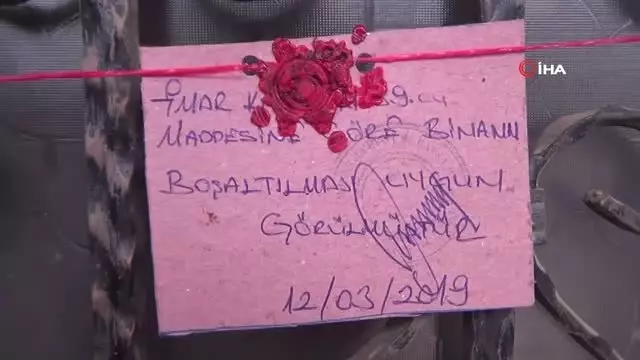 İHA
İMAR 39.
MADDESİNE GÖRE BİNANIN
BOŞALTILMASI UYGUN
GÖRÜLMÜŞTÜR
12/03/2019